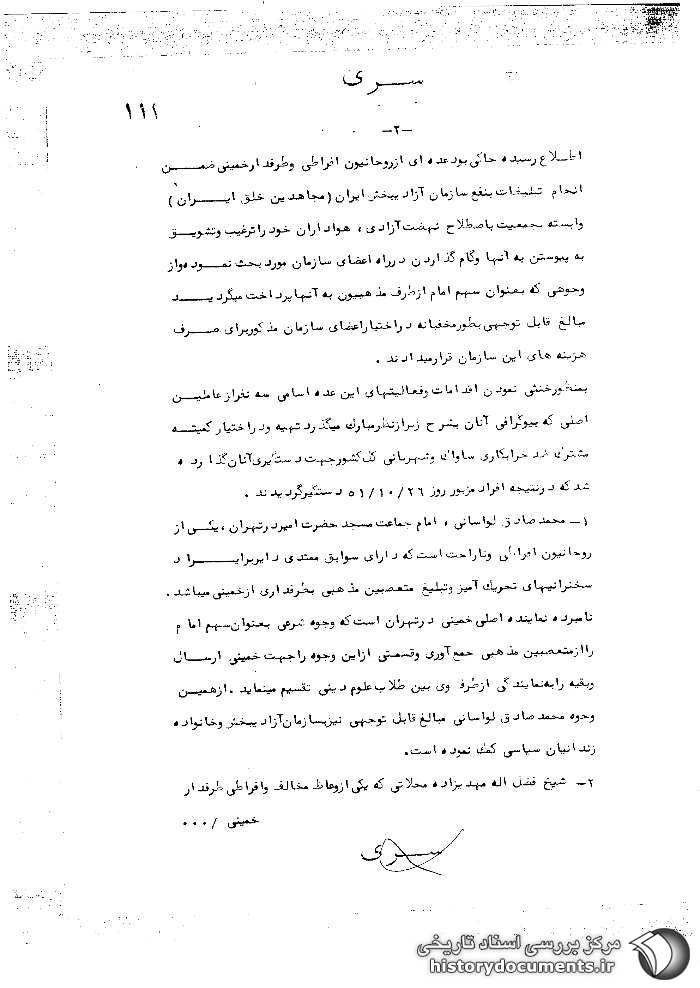 سری
۱۱۱
-۲-
اطلاع رسیده حاکی بود عده ای از روحانیون افراطی و طرفدار خمینی ضمن
انجام تبلیغات بنفع سازمان آزادیبخش ایران (مجاهدین خلق ایران)
وابسته بجمعیت باصطلاح نهضت آزادی، هواداران خود را ترغیب و تشویق
به پیوستن به آنها و گام گذاردن در راه اعضای سازمان مورد بحث نموده و از
وجوهی که بعنوان سهم امام از طرف مذهبیون به آنها پرداخت میگردید
مبالغ قابل توجهی بطور مخفیانه در اختیار اعضای سازمان مذکور برای صرف
هزینه های این سازمان قرار میدادند .
بمنظور خنثی نمودن اقدامات و فعالیتهای این عده اسامی سه نفر از عاملین
اصلی که بیوگرافی آنان بشرح زیر از نظر مبارک میگذرد تهیه و در اختیار کمیته
مشترک ضد خرابکاری ساواک و شهربانی کل کشور جهت دستگیری آنان گذارده
شد که در نتیجه افراد مزبور روز ۵۱/۱۰/۲۶ دستگیر گردیدند .
۱- محمد صادق لواسانی، امام جماعت مسجد حضرت امیر در تهران، یکی از
روحانیون افراطی و ناراحت است که دارای سوابق ممتدی دایر بر ایراد
سخنرانیهای تحریک آمیز و تبلیغ متعصبین مذهبی بطرفداری از خمینی میباشد .
نامبرده نماینده اصلی خمینی در تهران است که وجوه شرعی بعنوان سهم امام
را از متعصبین مذهبی جمع آوری و قسمتی از این وجوه را جهت خمینی ارسال
و بقیه را به نمایندگی از طرف وی بین طلاب علوم دینی تقسیم مینماید . از همین
وجوه محمد صادق لواسانی مبالغ قابل توجهی نیز بسازمان آزادیبخش و خانواده
زندانیان سیاسی کمک نموده است.
۲- شیخ فضل اله مهدیزاده محلاتی که یکی از وعاظ مخالف و افراطی طرفدار
خمینی /۰۰۰
سری
مرکز بررسی اسناد تاریخی
historydocuments.ir